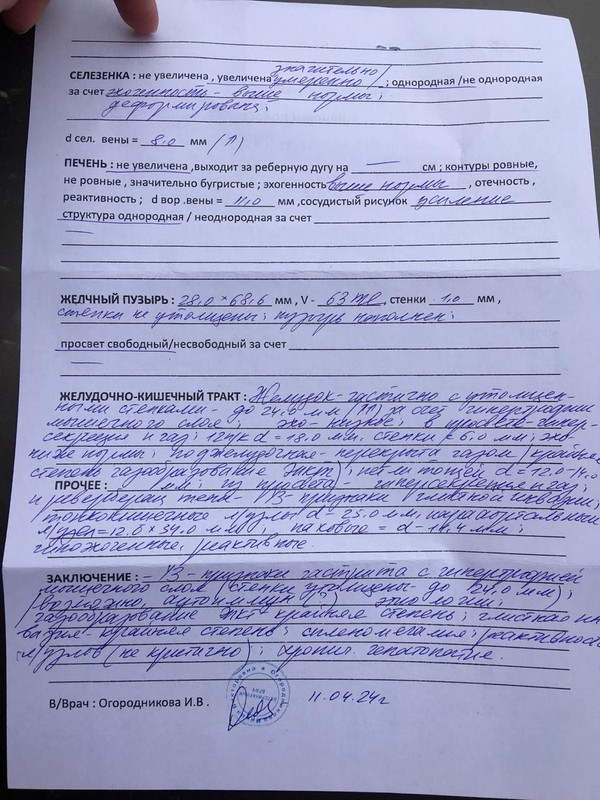 значительно/
СЕЛЕЗЕНКА : не увеличена , увеличена умеренно/ ; однородная /не однородная
за счет эхогенность - выше нормы;
деформирована;
d сел. вены = 8,0 мм (↑)
ПЕЧЕНЬ : не увеличена ,выходит за реберную дугу на — см ; контуры ровные,
не ровные , значительно бугристые ; эхогенность выше нормы , отечность ,
реактивность ; d вор .вены = 11,0 мм ,сосудистый рисунок усиление
структура однородная / неоднородная за счет
—
ЖЕЛЧНЫЙ ПУЗЫРЬ : 28,0 × 68,6 мм , V - 63 ml , стенки 1,0 мм ,
стенки не утолщены; пузырь наполнен;
просвет свободный/несвободный за счет
—
ЖЕЛУДОЧНО-КИШЕЧНЫЙ ТРАКТ : Желудок - частично с утолщен-
ными стенками - до 24,0 мм (↑↑) за счет гипертрофии
мышечного слоя; эхо - низкое; в просвете - гипер-
секреция и газ; 12п/к d = 18,0 мм, стенки < 6,0 мм; эхо-
ниже нормы; поджелудочная - перекрыта газом (крайняя
степень газообразование ЖКТ); петли тощей d = 12,0-14,0
ПРОЧЕЕ : мм; из просвета - гиперсекреция и газ;
и реверберац тень УЗ-признаки глистной инвазии;
тонкокишечного л/узлы d = 25,0 мм,
л/узел = 12,6 × 34,0 мм; паховые = d - 11,4 мм;
гипоэхогенные, реактивные.
ЗАКЛЮЧЕНИЕ : - УЗ - признаки гастрита с гипертрофией
мышечного слоя (стенки утолщены до 24,0 мм);
(возможно, аутоиммун. этиологии);
газообразование ЖКТ крайняя степень; глистная ин-
вазия - крайняя степень; спленомегалия; реактивность
л/узлов (не критично); хронич. гепатопатия.
В/Врач : Огородникова И.В .
11.04.24г